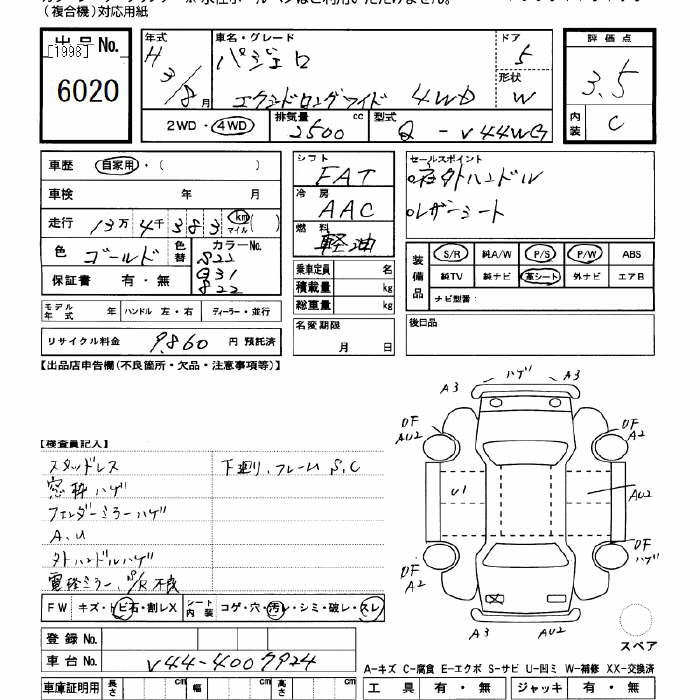 (複合機)対応用紙
出品 No.
[1998]
6020
年式
H
3/8 月
車名・グレード
パジェロ
エクシードロングワイド 4WD
ドア
5
形状
W
評価点
3.5
内装
C
2WD・4WD
排気量
2500 cc
型式
Q - V44WG
車歴 自家用・( )
車検 年 月
走行 13万 4千 383 km マイル ( )
色 ゴールド 色替
カラーNo.
822
Q31
822
保証書 有・無
モデル年式 年
ハンドル 左・右
ディーラー・並行
リサイクル料金 9,860 円 預託済
シフト
FAT
冷房
AAC
燃料
軽油
乗車定員 名
積載量 kg
総重量 kg
名変期限
月 日
セールスポイント
外ハンドル
○レザーシート
装備品
S/R 純A/W P/S P/W ABS
純TV 純ナビ 革シート 外ナビ エアB
ナビ型番:
後日品
【出品店申告欄(不良箇所・欠品・注意事項等)】
A3 ハゲ A3
DF
AU2
DF
A2
U1
AU2
DF
A2
DF
ハゲ
A3 AU2
X
スペア
【検査員記入】
スタッドレス
下廻リ, フレーム S, C
窓枠ハゲ
フェンダーミラーハゲ
A, U
外ハンドルハゲ
電格ミラー, P/R 不良
FW キズ・トビ石・割レX
シート内装 コゲ・穴・汚レ・シミ・破レ・スレ
登録 No.
車台 No. V44-4007924
車庫証明用 長さ cm 幅 cm 高さ cm
A-キズ C-腐食 E-エクボ S-サビ U-凹ミ W-補修 XX-交換済
工具 有・無 ジャッキ 有・無